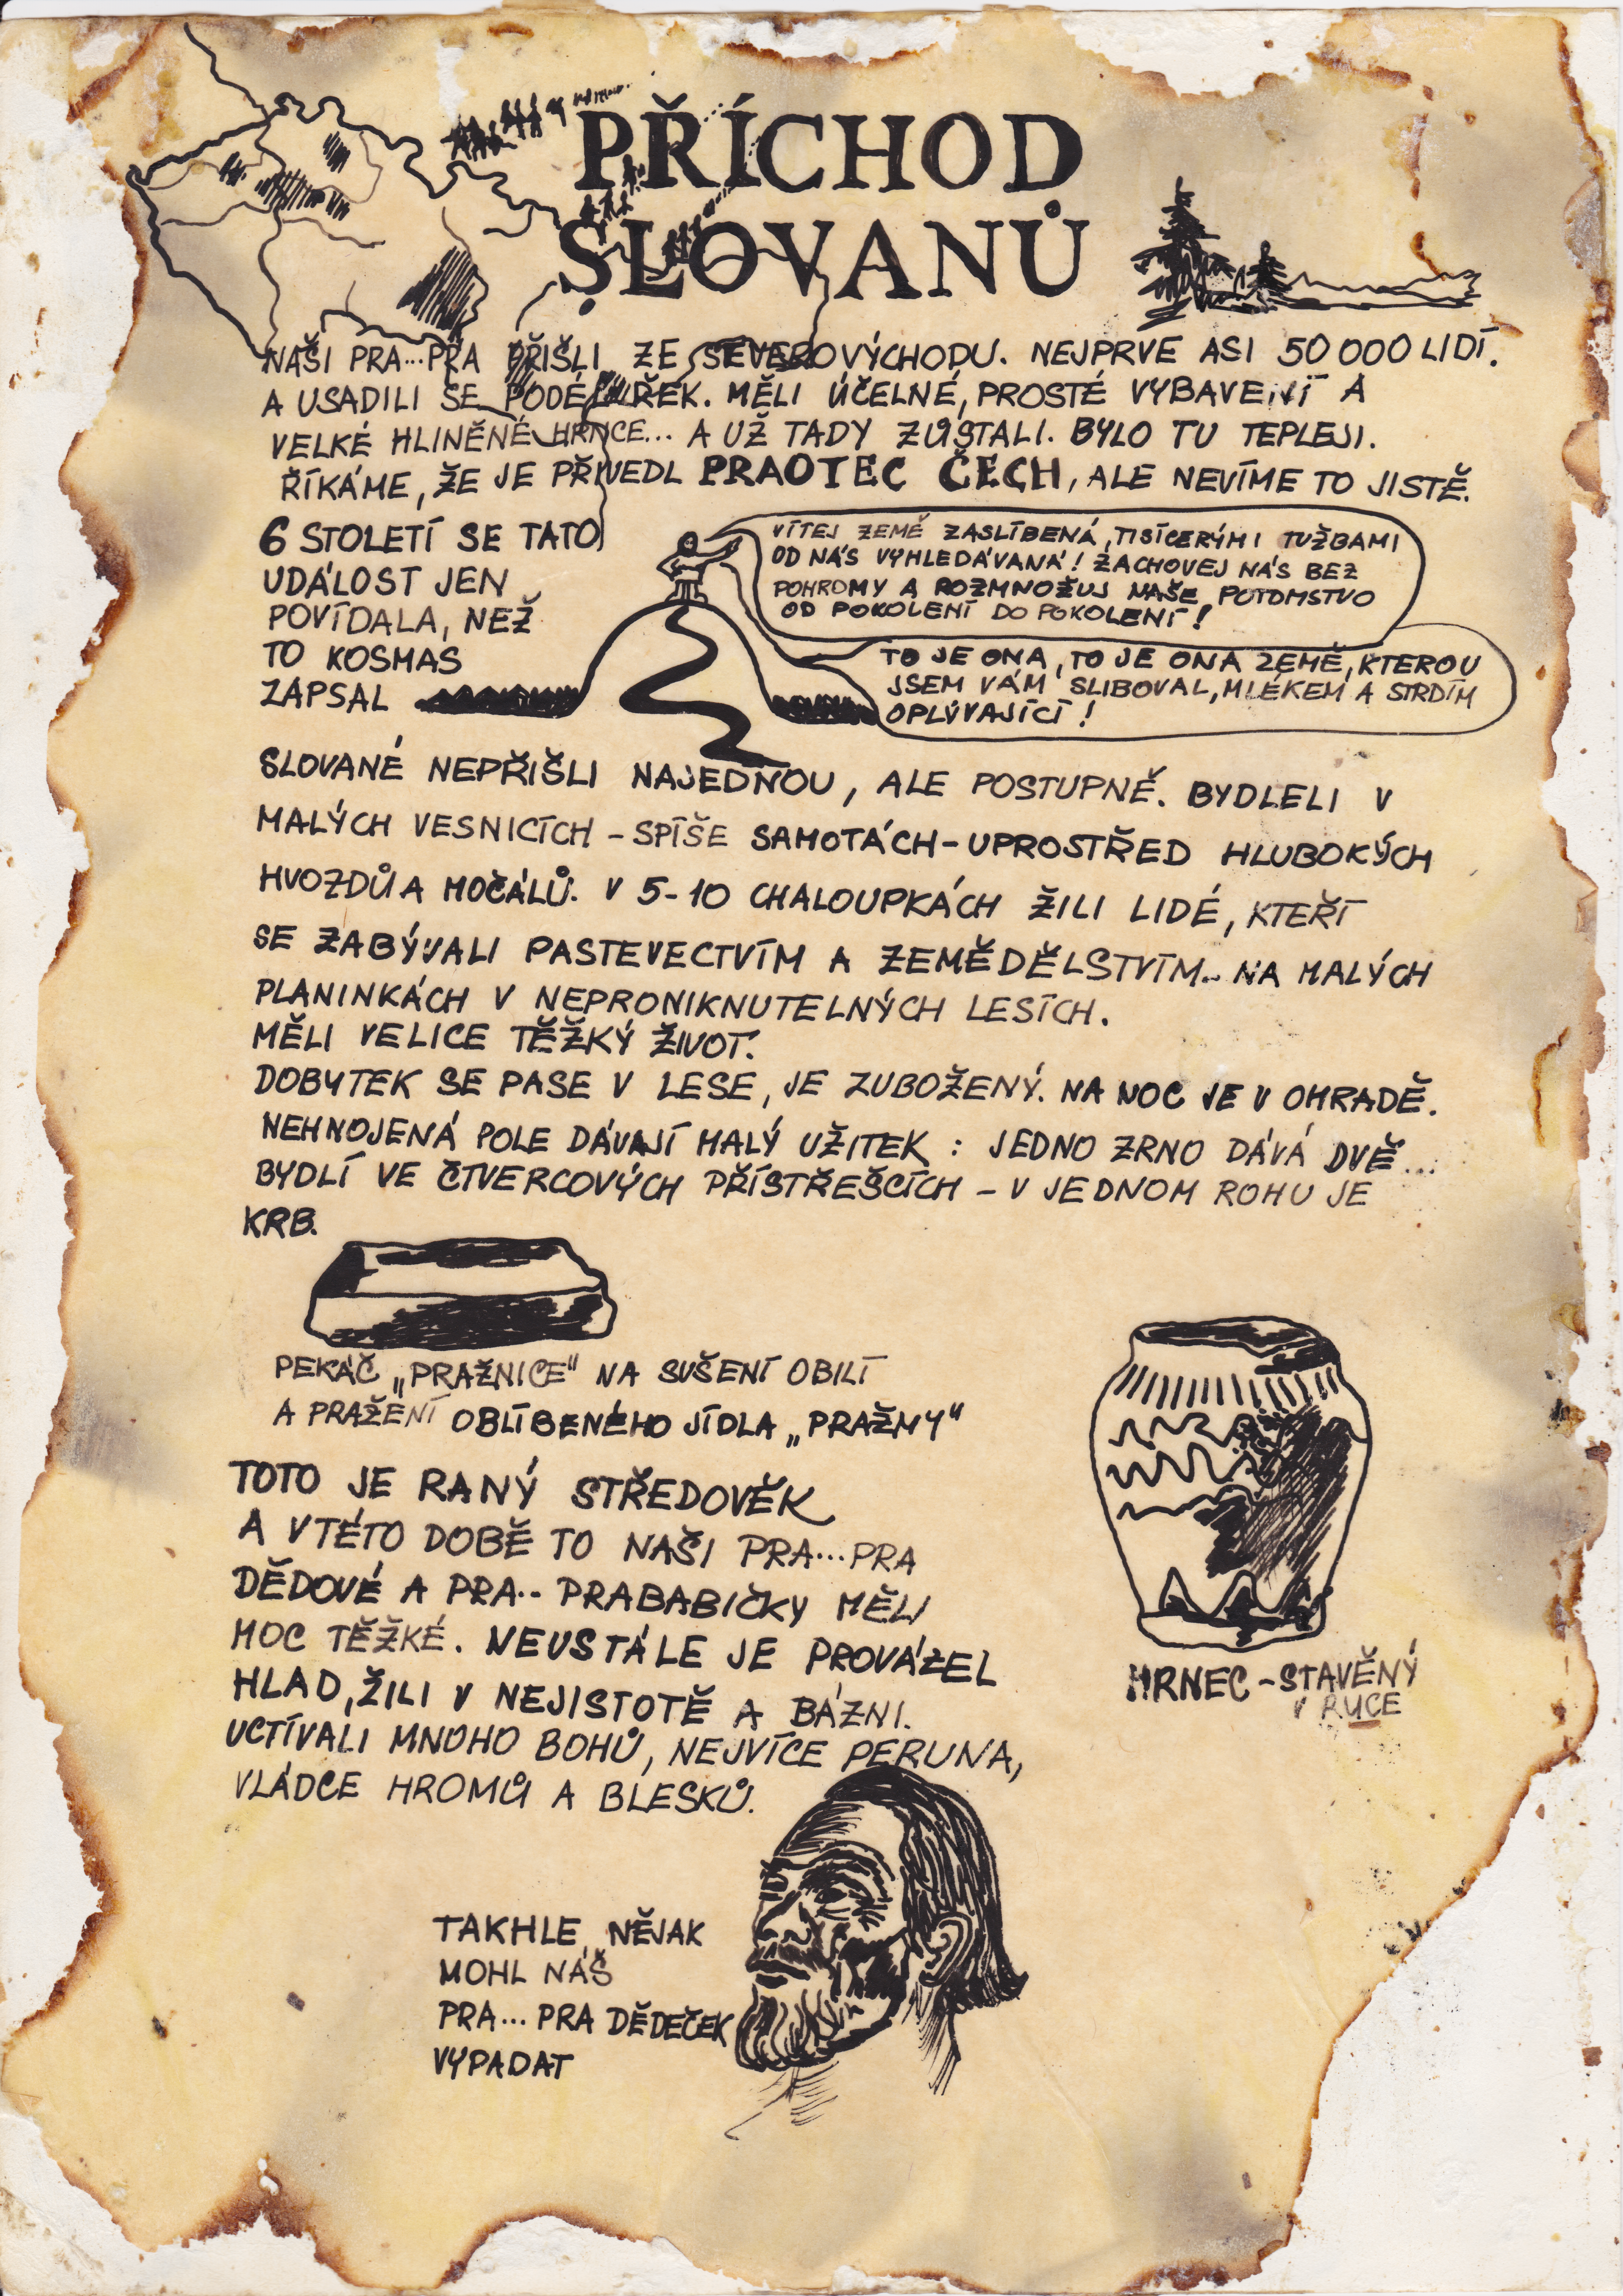 PŘÍCHOD
SLOVANŮ
NAŠI PRA...PRA PŘIŠLI ZE SEVEROVÝCHODU. NEJPRVE ASI 50 000 LIDÍ.
A USADILI SE PODÉL ŘEK. MĚLI ÚČELNÉ, PROSTÉ VYBAVENÍ A
VELKÉ HLINĚNÉ HRNCE... A UŽ TADY ZŮSTALI. BYLO TU TEPLEJI.
ŘÍKÁME, ŽE JE PŘIVEDL PRAOTEC ČECH, ALE NEVÍME TO JISTĚ.
6 STOLETÍ SE TATO
UDÁLOST JEN
POVÍDALA, NEŽ
TO KOSMAS
ZAPSAL
VÍTEJ ZEMĚ ZASLÍBENÁ, TISÍCERÝMI TUŽBAMI
OD NÁS VYHLEDÁVANÁ! ZACHOVEJ NÁS BEZ
POHROMY A ROZMNOŽUJ NAŠE POTOMSTVO
OD POKOLENÍ DO POKOLENÍ!
TO JE ONA, TO JE ONA ZEMĚ, KTEROU
JSEM VÁM SLIBOVAL, MLÉKEM A STRDÍM
OPLÝVAJÍCÍ!
SLOVANÉ NEPŘIŠLI NAJEDNOU, ALE POSTUPNĚ. BYDLELI V
MALÝCH VESNICÍCH - SPÍŠE SAMOTÁCH - UPROSTŘED HLUBOKÝCH
HVOZDŮ A MOČÁLŮ. V 5-10 CHALOUPKÁCH ŽILI LIDÉ, KTEŘÍ
SE ZABÝVALI PASTEVECTVÍM A ZEMĚDĚLSTVÍM.. NA MALÝCH
PLANINKÁCH V NEPRONIKNUTELNÝCH LESÍCH.
MĚLI VELICE TĚŽKÝ ŽIVOT.
DOBYTEK SE PASE V LESE, JE ZUBOŽENÝ. NA NOC JE V OHRADĚ.
NEHNOJENÁ POLE DÁVAJÍ MALÝ UŽITEK : JEDNO ZRNO DÁVÁ DVĚ...
BYDLÍ VE ČTVERCOVÝCH PŘÍSTŘEŠCÍCH - V JEDNOM ROHU JE
KRB.
PEKÁČ „PRAŽNICE" NA SUŠENÍ OBILÍ
A PRAŽENÍ OBLÍBENÉHO JÍDLA „PRAŽMY"
TOTO JE RANÝ STŘEDOVĚK
A V TÉTO DOBĚ TO NAŠI PRA...PRA
DĚDOVÉ A PRA.. PRABABIČKY MĚLI
MOC TĚŽKÉ. NEUSTÁLE JE PROVÁZEL
HLAD, ŽILI V NEJISTOTĚ A BÁZNI.
UCTÍVALI MNOHO BOHŮ, NEJVÍCE PERUNA,
VLÁDCE HROMŮ A BLESKŮ.
HRNEC - STAVĚNÝ
V RUCE
TAKHLE NĚJAK
MOHL NÁŠ
PRA... PRA DĚDEČEK
VYPADAT